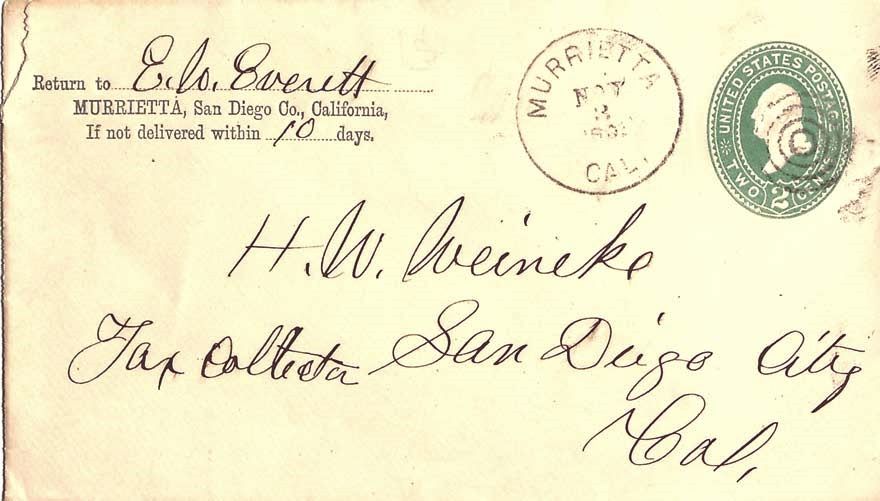 Return to E. W. Everett
MURRIETTA, San Diego Co., California,
If not delivered within 10 days.
MURRIETTA
NOV
CAL.
UNITED STATES POSTAGE
TWO 2 CENTS
H. W. Weineke
Tax Collector San Diego City
Cal,